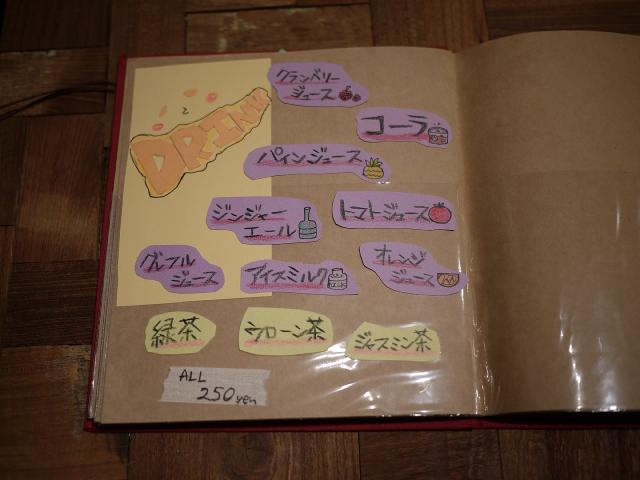 DRINK
クランベリー
ジュース
コーラ
パインジュース
ジンジャー
エール
トマトジュース
グレフル
ジュース
アイスミルク
オレンジ
ジュース
緑茶
ウーロン茶
ジャスミン茶
ALL
250yen